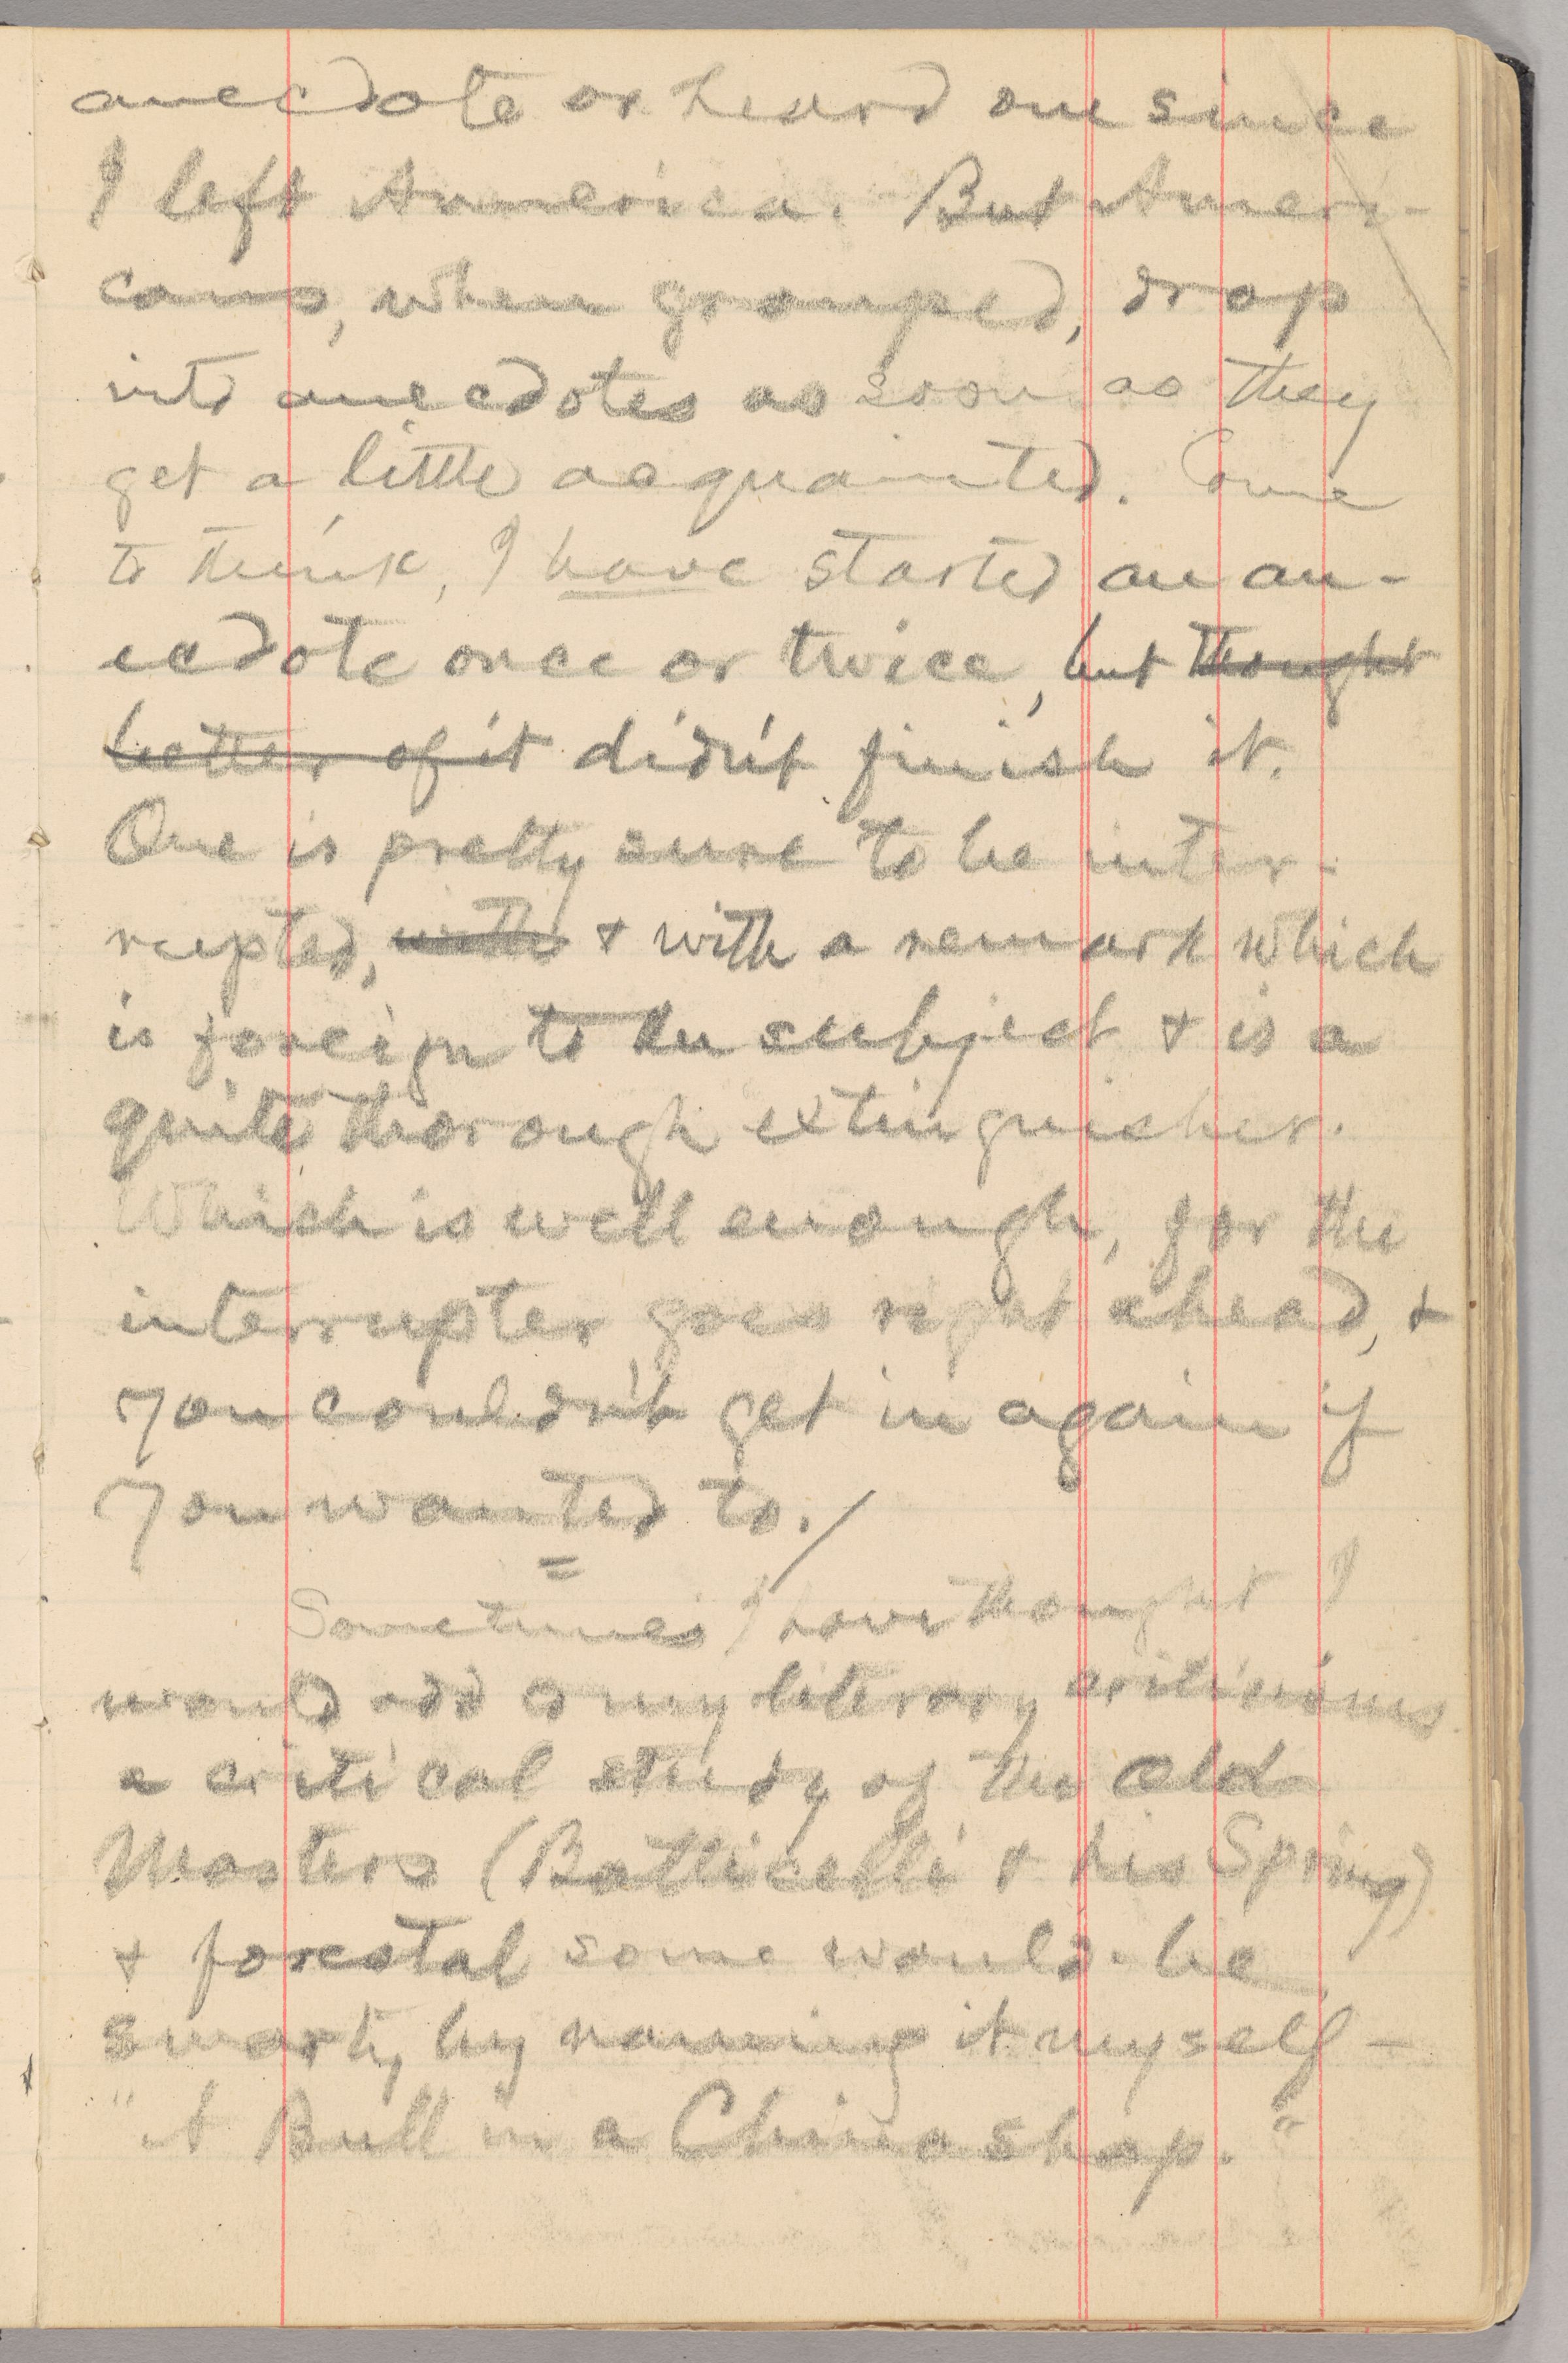 anecdote or heard one since
I left America. But Ameri-
cans, when grouped, drop
into anecdotes as soon as they
get a little acquainted. Come
to think, I have started an an-
ecdote once or twice, but thought
better of it didn't finish it.
One is pretty sure to be inter-
rupted, with & with a remark which
is foreign to the subject & is a
quite thorough extinguisher.
Which is well enough, for the
interrupter goes right ahead, &
you couldn't get in again if
you wanted to./
=
Sometimes I have thought I
would add to my literary criticisms
a critical study of the Old
Masters (Botticelli & his Spring)
& forestal some would-be
smarty by naming it myself —
"A Bull in a China shop."